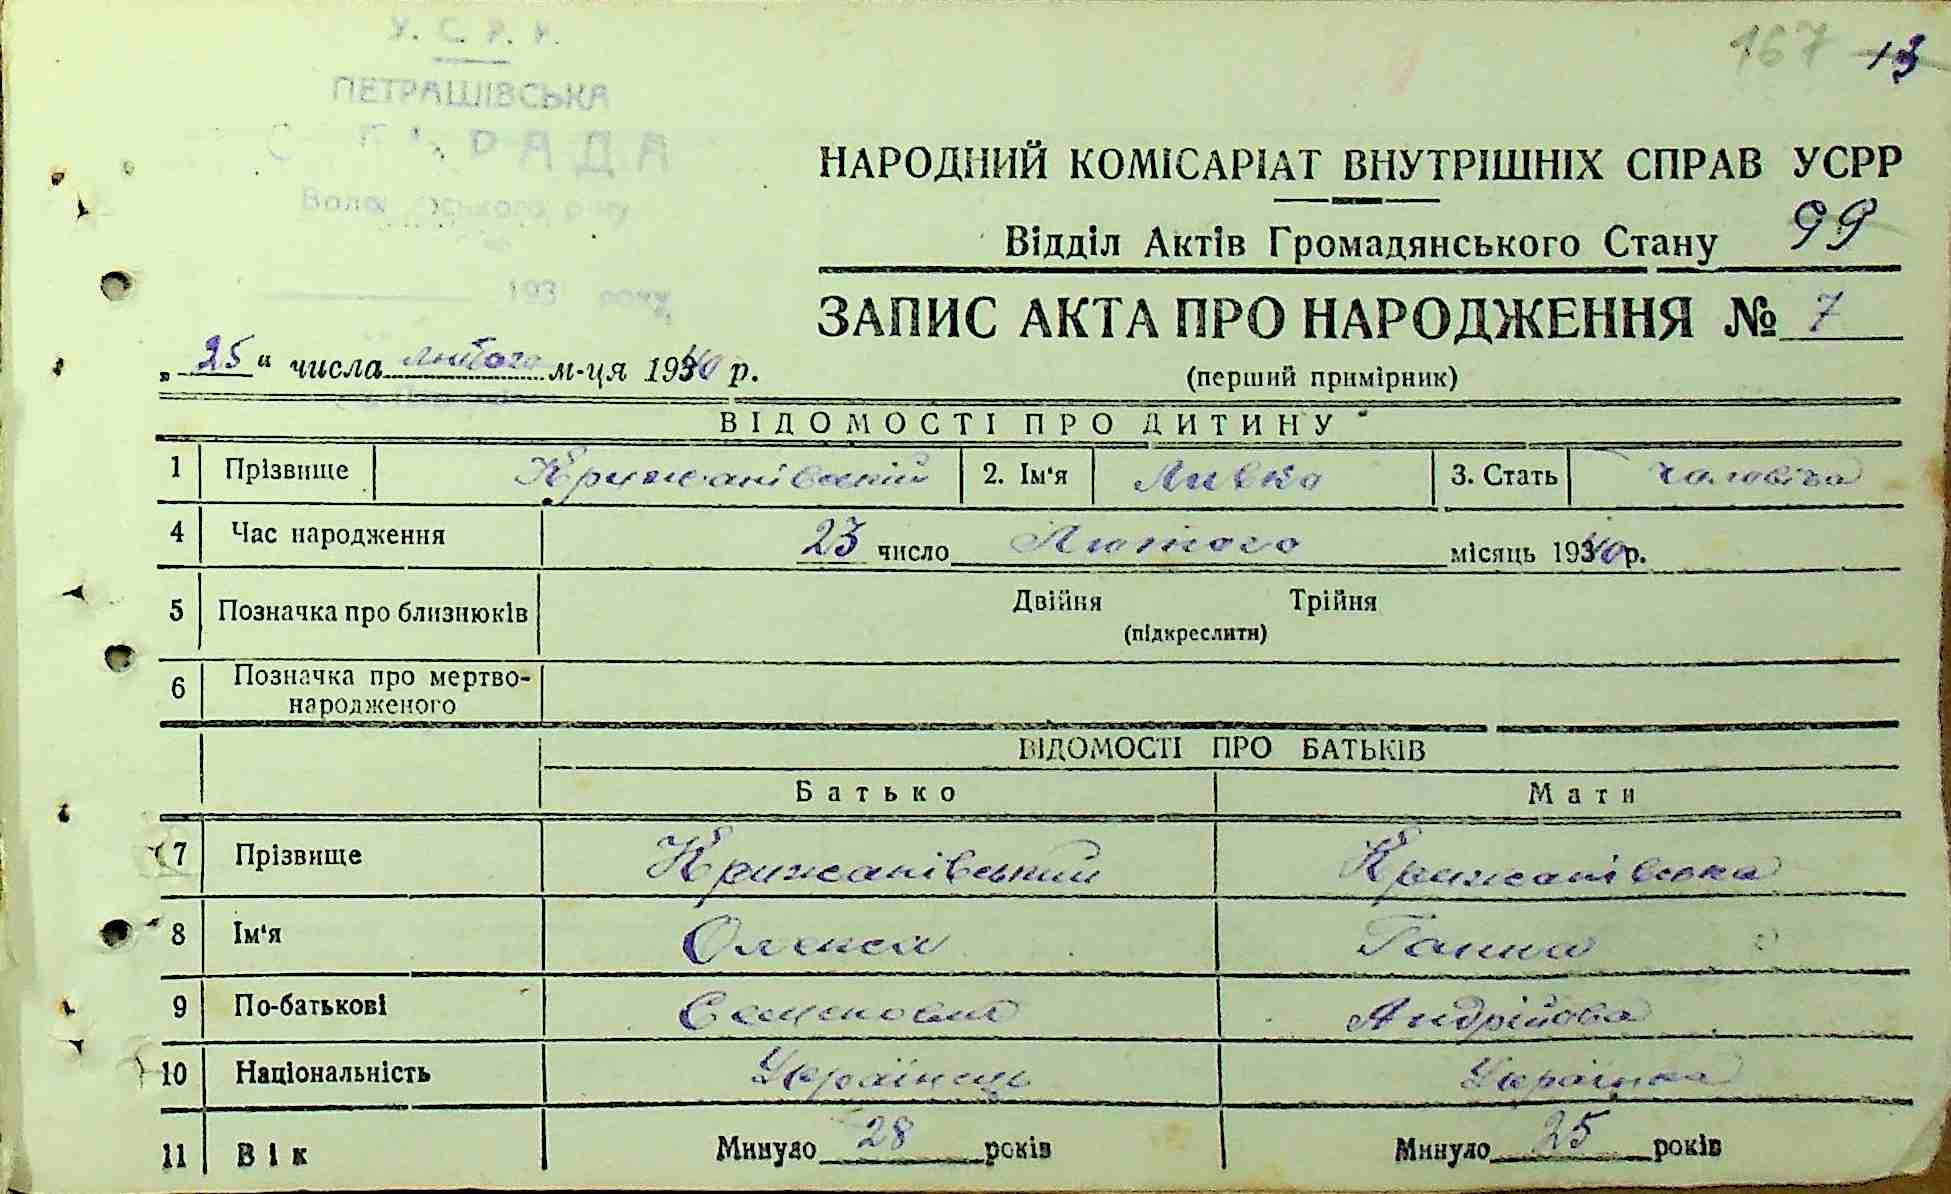 У. С. Р. Р.
ПЕТРАШІВСЬКА
РАДА
193 року
167 13
НАРОДНИЙ КОМІСАРІАТ ВНУТРІШНІХ СПРАВ УСРР
Відділ Актів Громадянського Стану 99
ЗАПИС АКТА ПРО НАРОДЖЕННЯ № 7
„25“ числа лютого м-ця 1940 р.
(перший примірник)
ВІДОМОСТІ ПРО ДИТИНУ
1 Прізвище Крижанівський 2. Ім'я 3. Стать чоловіча
4 Час народження 23 число Лютого місяць 1940 р.
5 Позначка про близнюків Двійня Трійня
(підкреслити)
6 Позначка про мертво-
народженого
ВІДОМОСТІ ПРО БАТЬКІВ
Батько Мати
7 Прізвище Крижанівський Крижанівська
8 Ім'я Олекса Ганна
9 По-батькові Семенович Андрійовна
10 Національність Українець Українка
11 Вік Минуло 28 років Минуло 25 років